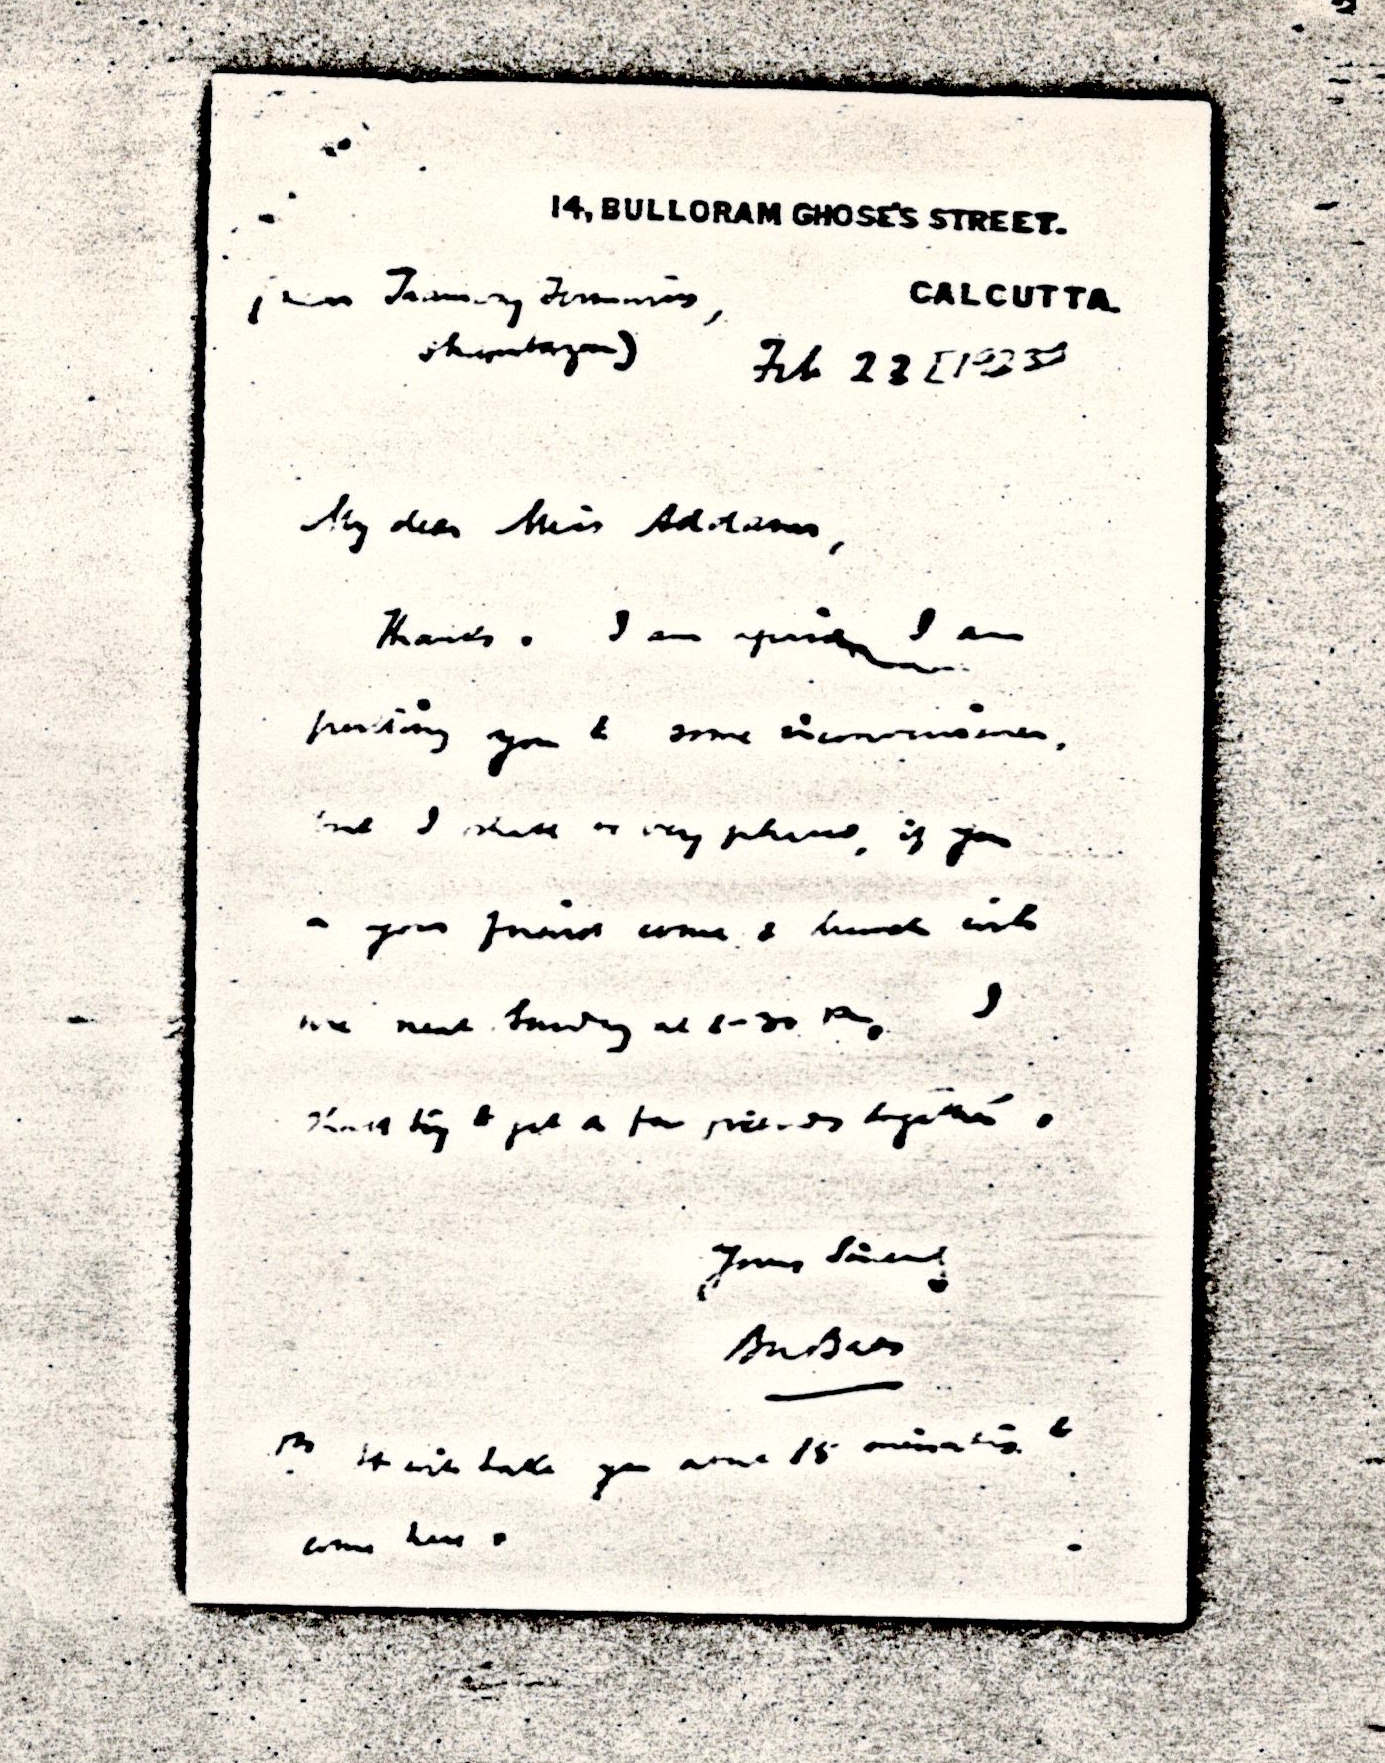 14, BULLORAM GHOSE'S STREET.
CALCUTTA.
(near Tramway Terminus,
Shambazar)
Feb 22 [1923]
My dear Miss Addams,
Thanks. I am afraid I am
putting you to some inconvenience,
but I shall be very pleased, if you
& your friend come & lunch with
me next Sunday at PM. I
shall try to get a few friends together.
Yours Sincerely
PS It will take you some 15 minutes to
come here.